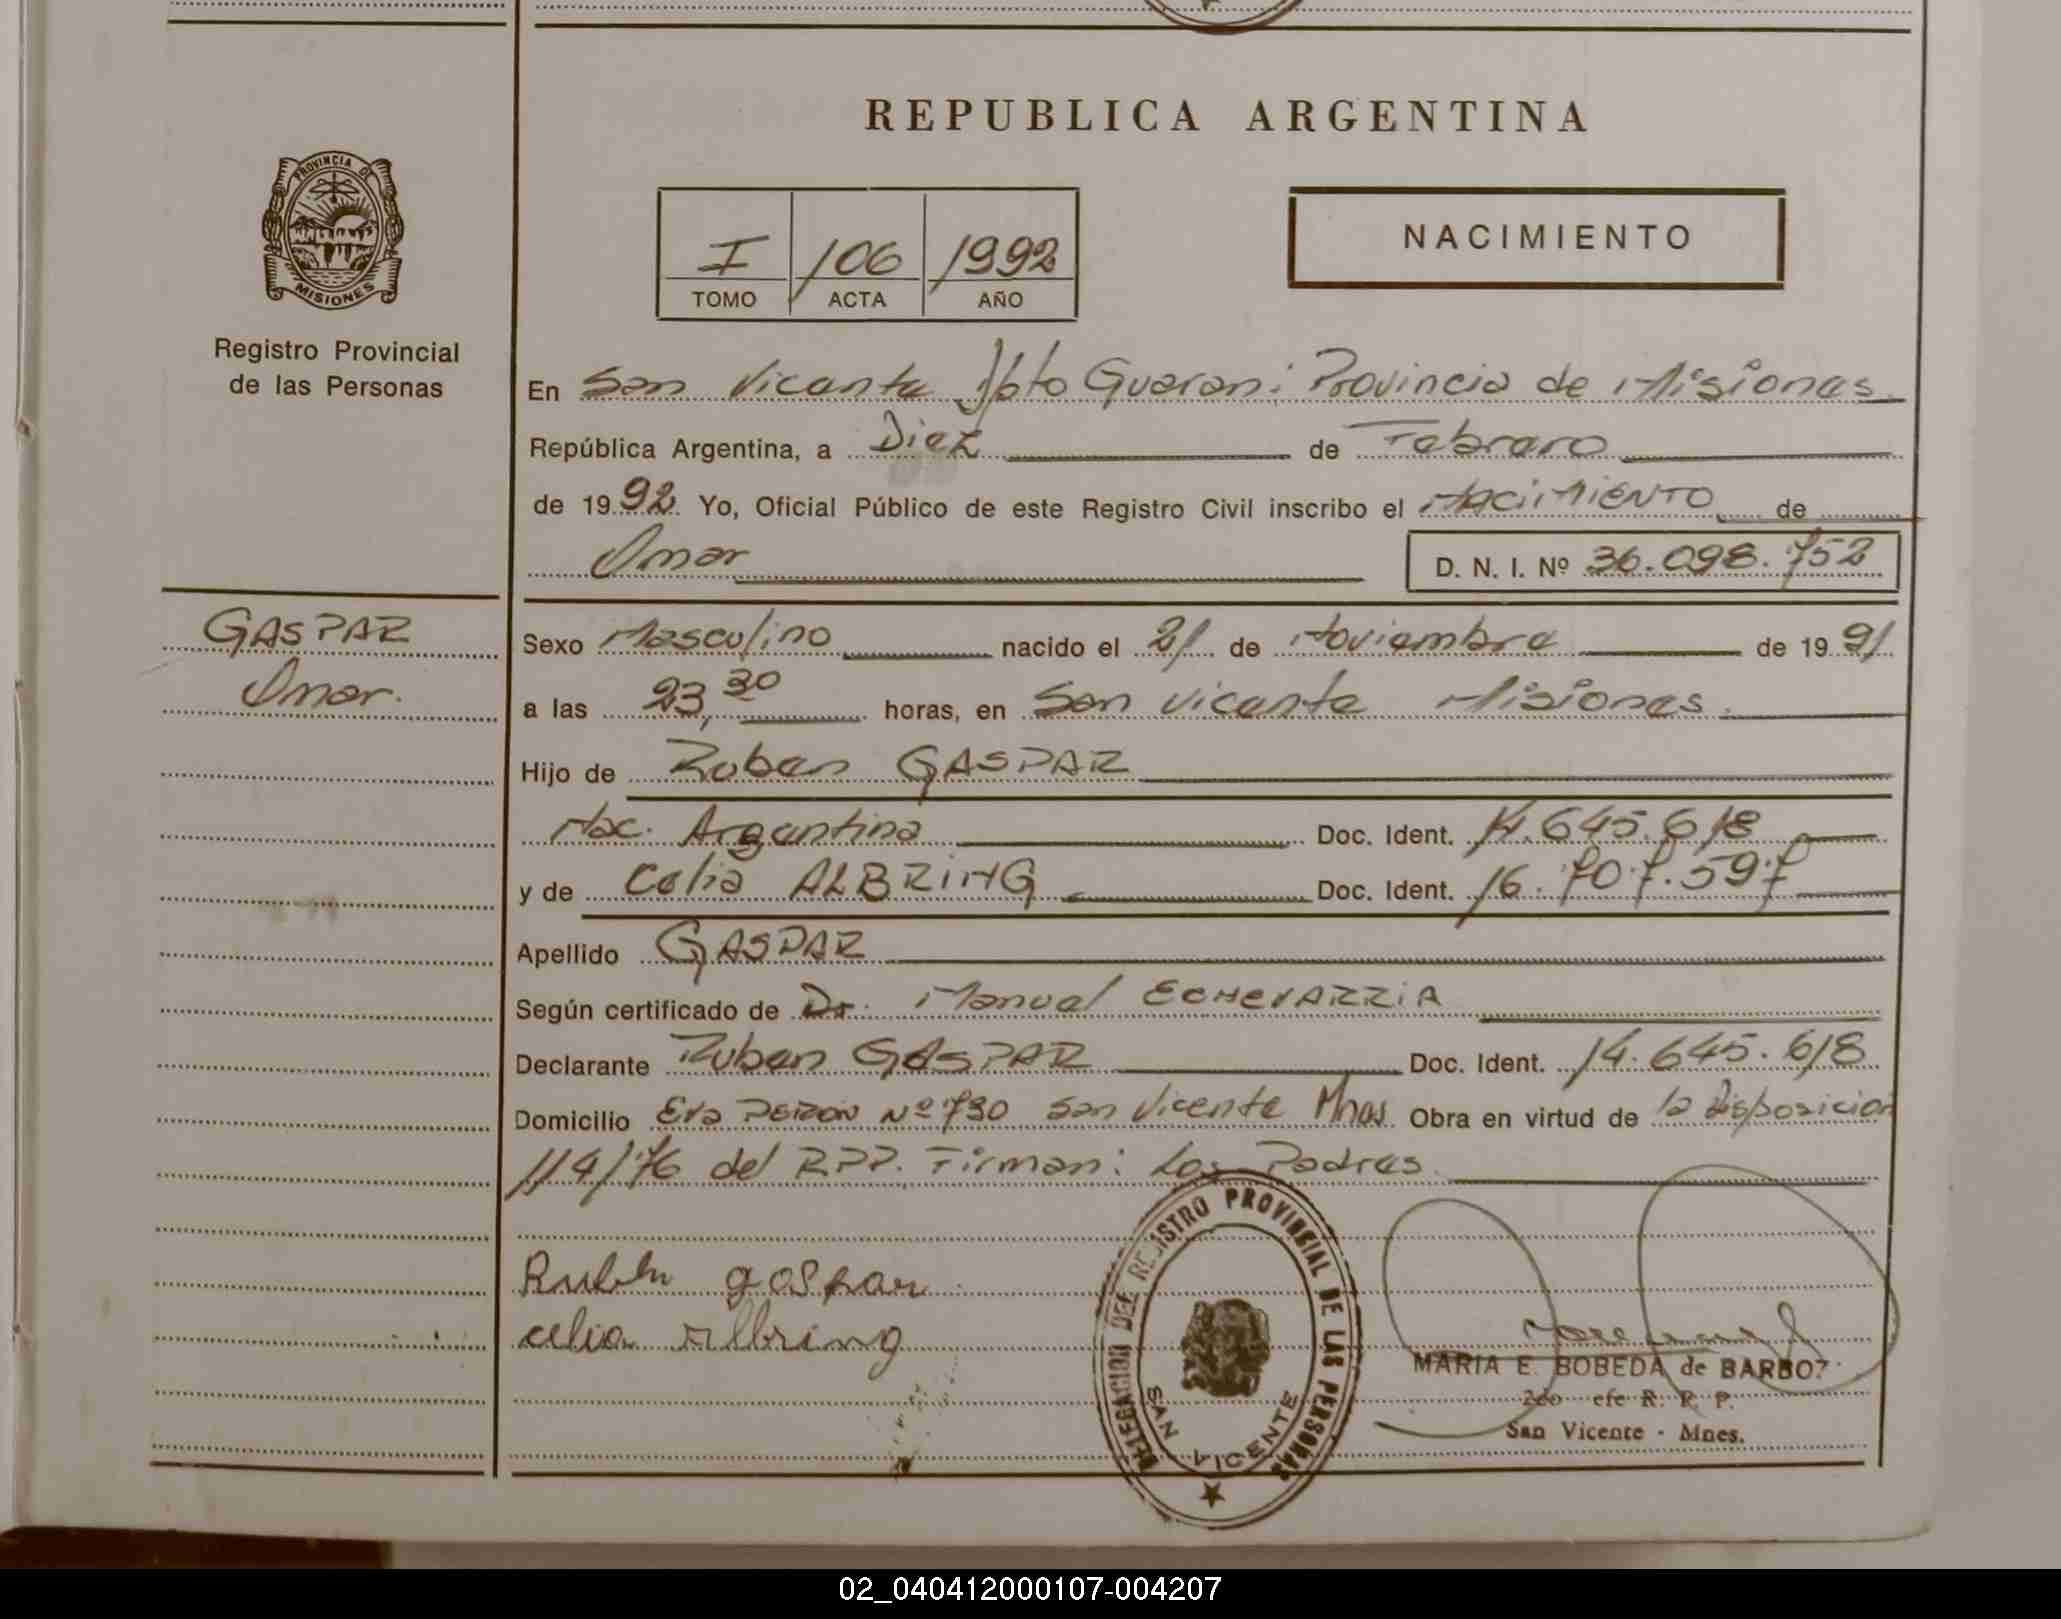 REPUBLICA ARGENTINA
PROVINCIA DE
MISIONES
Registro Provincial
de las Personas
I /106 /1992
TOMO ACTA AÑO
NACIMIENTO
En San Vicente Dpto Guarani Provincia de Misiones.
República Argentina, a Diez de Febrero
de 1992. Yo, Oficial Público de este Registro Civil inscribo el NACIMIENTO de
Omar D. N. I. Nº 36.098.752
GASPAR
Omar.
Sexo Masculino nacido el 21 de Noviembre de 1991
a las 23,30 horas, en San Vicente Misiones.
Hijo de Ruben GASPAR
Nac. Argentina Doc. Ident. 14.645.618
y de Celia ALBRING Doc. Ident. 16.707.597
Apellido GASPAR
Según certificado de Dr. Manuel ECHEVARRIA
Declarante Ruben GASPAR Doc. Ident. 14.645.618
Domicilio Eva PERON Nº 790 San Vicente Mnes. Obra en virtud de la Disposicion
114/76 del R.P.P. Firman: Los Padres.
Ruben gaspar
celia Albring
DELEGACION DEL REGISTRO PROVINCIAL DE LAS PERSONAS
SAN VICENTE
MARIA E. BOBEDA de BARBOZ
2do efe R. P. P.
San Vicente - Mnes.
02_040412000107-004207